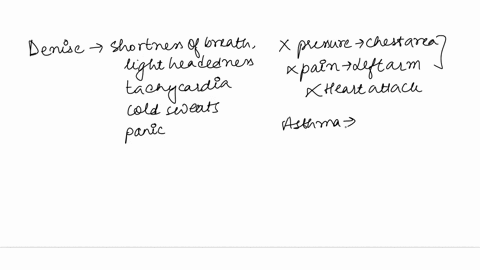 Denise → shortness of breath,
light headedness
tachycardia
cold sweats
panic
x pressure → chest area
x pain → Left arm
x Heart attack
Asthma →